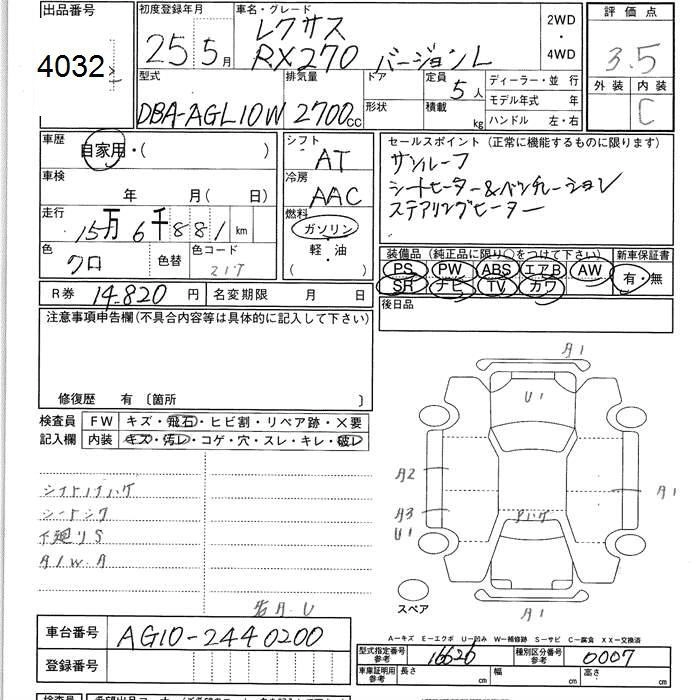 出品番号
4032
初度登録年月
25 5 月
車名・グレード
レクサス
RX270 バージョンL
2WD
・
4WD
評価点
3.5
外装 内装
C
型式
DBA-AGL10W
排気量
2700cc
ドア
形状
定員
5人
積載
kg
ディーラー・並 行
モデル年式 年
ハンドル 左・右
車歴
自家用・( )
車検
年 月( 日)
走行
15万6千881km
色
クロ
色替
色コード
217
シフト
AT
冷房
AAC
燃料
ガソリン
軽・油
( )
セールスポイント（正常に機能するものに限ります）
サンルーフ
シートヒーター&ベンチレーション
ステアリングヒーター
装備品（純正品に限り○をつけて下さい）
新車保証書
PS PW ABS エアB AW
SR ナビ TV カワ
有・無
後日品
R券 14.820円
名変期限 月 日
注意事項申告欄(不具合内容等は具体的に記入して下さい)
修復歴 有 〔箇所 〕
検査員
記入欄
FW キズ・飛石・ヒビ割・リペア跡・×要
内装 キズ・汚レ・コゲ・穴・スレ・キレ・破レ
シートシワ
下廻りS
A/W.A
A1
U1
A2
A3
U1
Pハゲ
A1
A1
スペア
A－キズ E－エクボ U－凹み W－補修跡 S－サビ C－腐食 XX－交換済
車台番号 AG10-2440200
登録番号
型式指定番号
参考
16620
種別区分番号
参考
0007
車庫証明用
参考
長さ cm
幅 cm
高さ cm